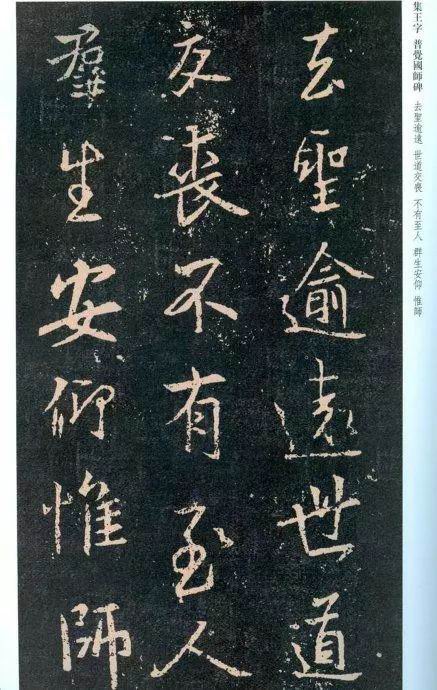 集王字 普覺國師碑 去聖逾遠 世道交喪 不有至人 群生安仰 惟師
去聖逾遠世道
交喪不有至人
羣生安仰惟師